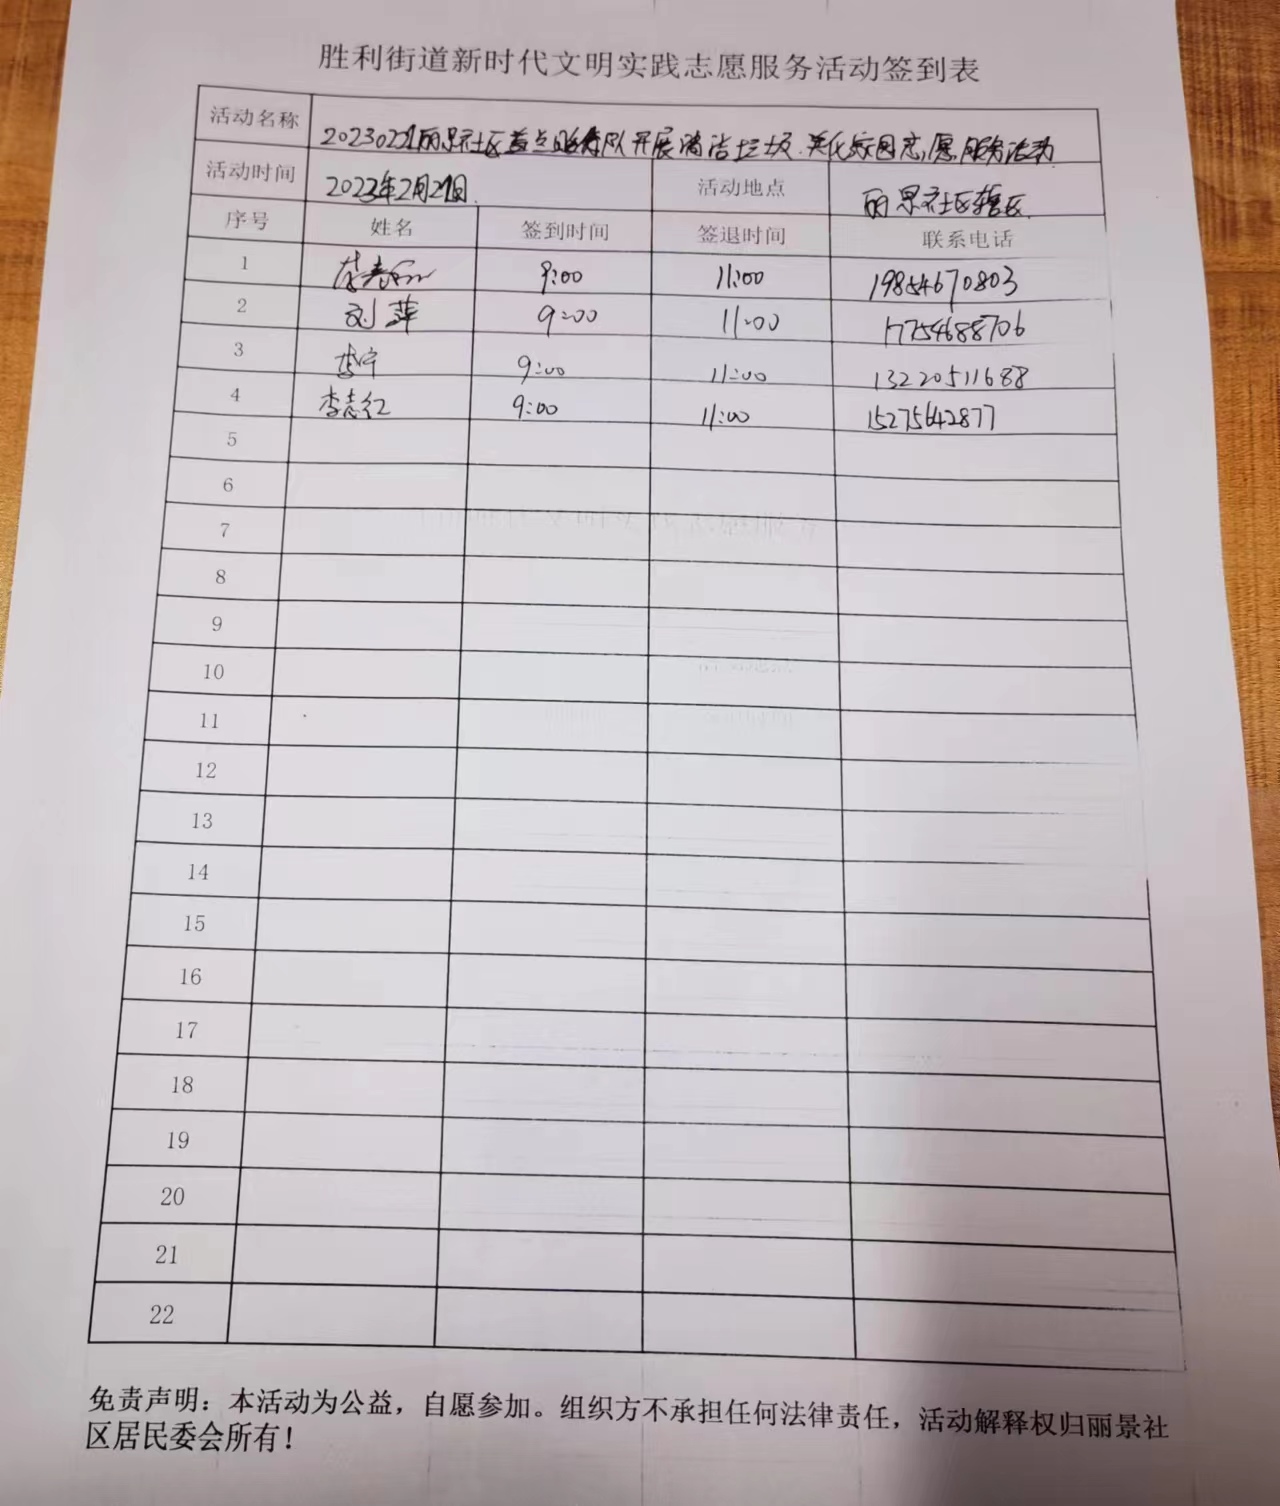 胜利街道新时代文明实践志愿服务活动签到表
活动名称 20230221丽景社区益点服务队开展清洁垃圾.美化家园志愿服务活动
活动时间 2023年2月21日. 活动地点 丽景社区辖区.
序号 姓名 签到时间 签退时间 联系电话
1 9:00 11:00 19854670803
2 刘萍 9:00 11:00 17754688706
3 李宁 9:00 11:00 13220511688
4 李志红 9:00 11:00 15275642877
5
6
7
8
9
10
11
12
13
14
15
16
17
18
19
20
21
22
免责声明：本活动为公益，自愿参加。组织方不承担任何法律责任，活动解释权归丽景社
区居民委会所有！